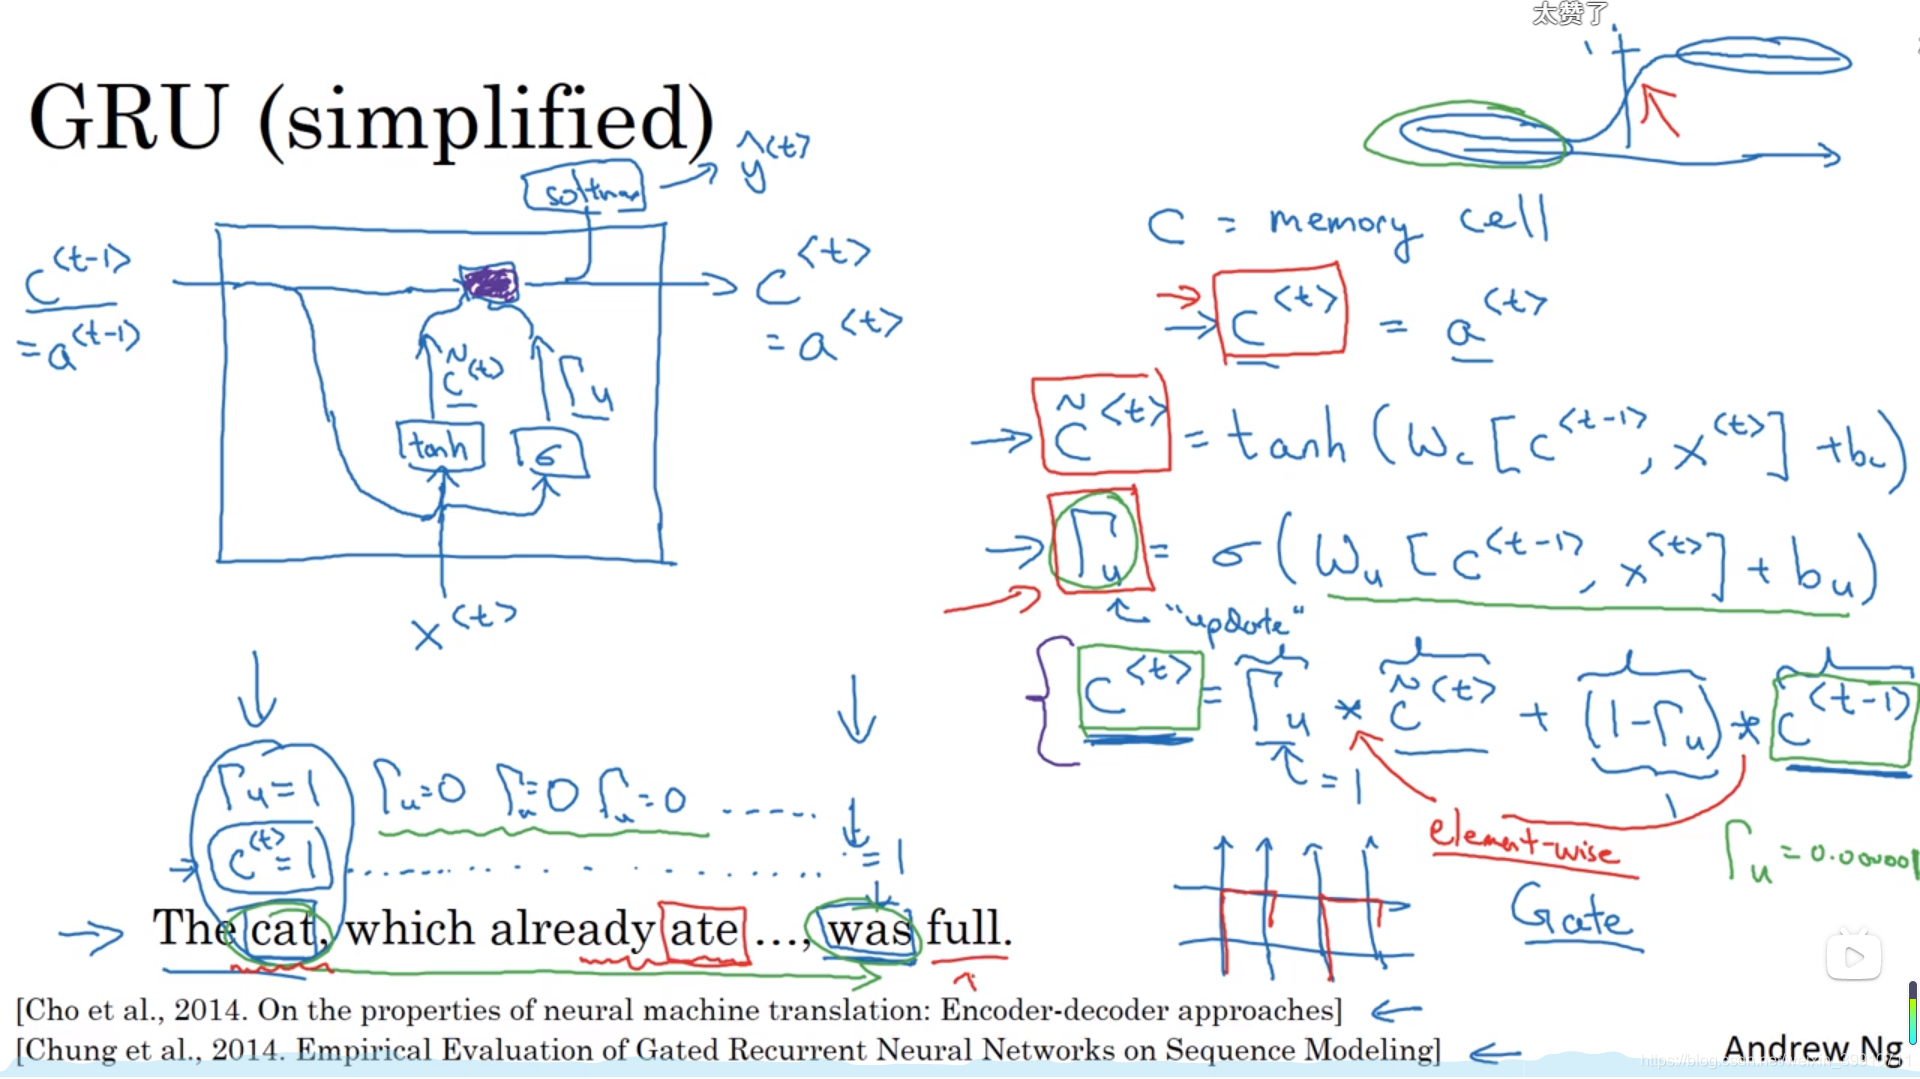 太赞了
GRU (simplified)
softmax
ŷ<t>
c<t-1>
= a<t-1>
c<t>
= a<t>
c̃<t>
Γu
tanh
σ
x<t>
1
c = memory cell
c<t> = a<t>
c̃<t> = tanh (Wc [c<t-1>, x<t>] + bc)
Γu = σ (Wu [c<t-1>, x<t>] + bu)
"update"
c<t> = Γu * c̃<t> + (1-Γu) * c<t-1>
= 1
element-wise
Gate
Γu = 1 Γu=0 Γu=0 Γu=0 .....
c<t> = 1 ..... = 1
The cat, which already ate ..., was full.
[Cho et al., 2014. On the properties of neural machine translation: Encoder-decoder approaches]
[Chung et al., 2014. Empirical Evaluation of Gated Recurrent Neural Networks on Sequence Modeling]
Andrew Ng